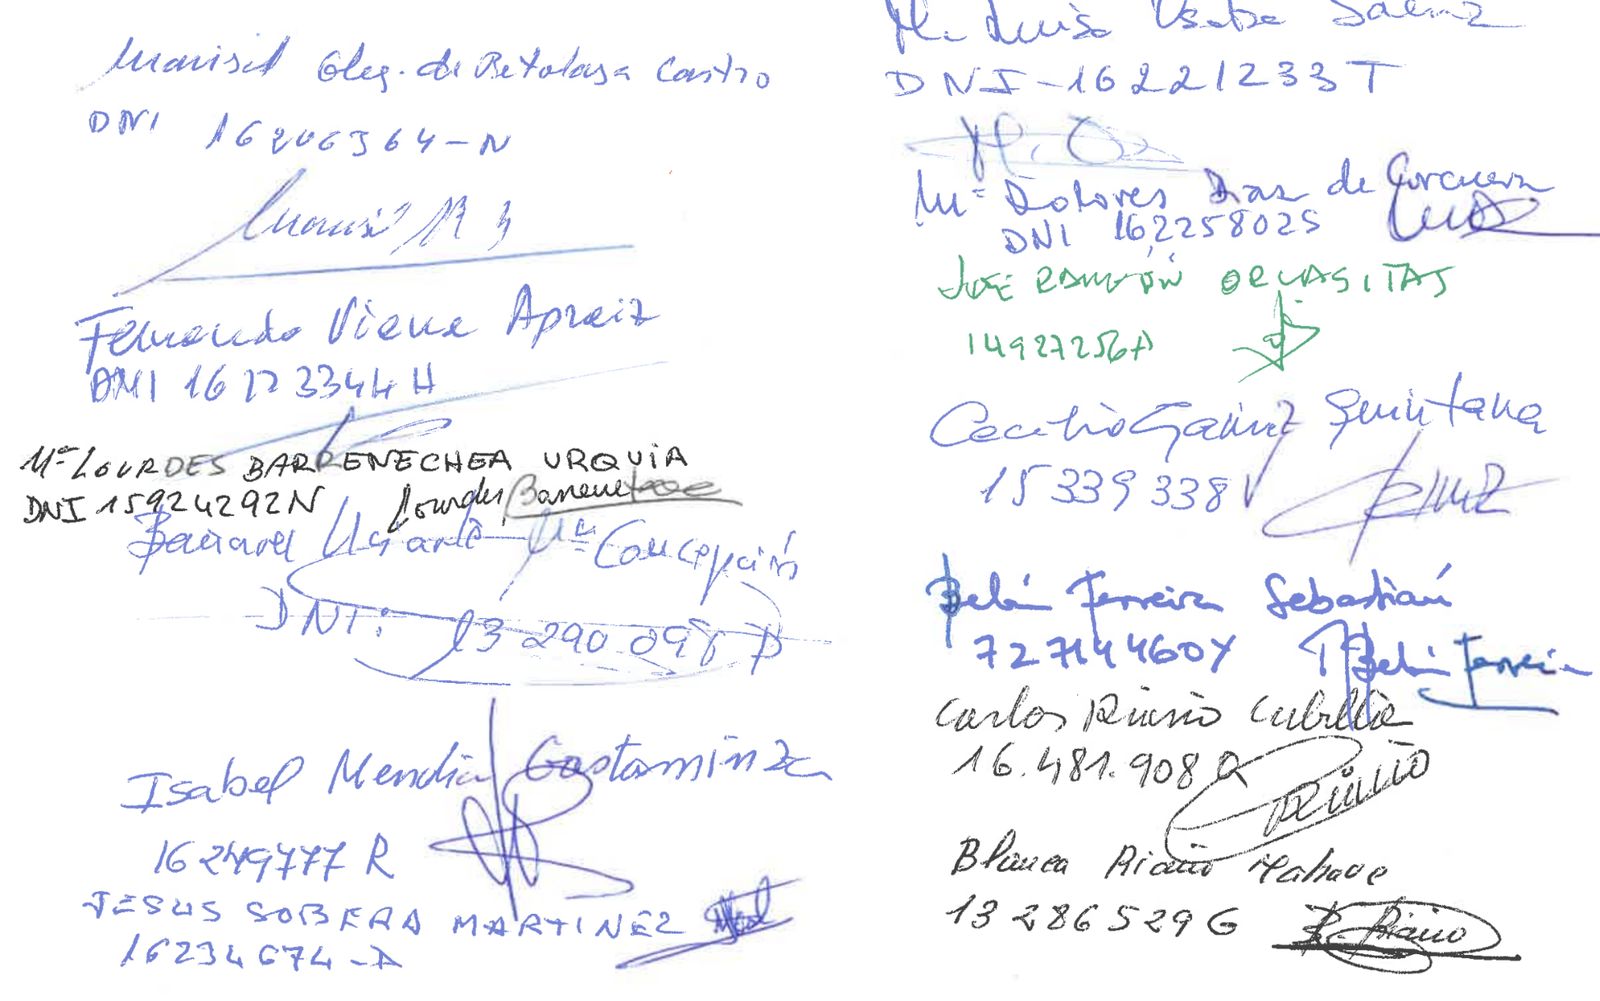 Marisil Glez. de Retolaza Castro
DNI 16206364-N
Marisil R
Fernando Viana Apraiz
DNI 16 3344 H
Mª LOURDES BARRENECHEA URQUIA
DNI 15924292N Lourdes Barrenechea
Ugarte Mª Concepción
DNI: 13 290 098
Isabel Mendia Gastaminza
16249777 R
JESUS SOBERA MARTINEZ
16234674-A
Mª Luisa Saenz
DNI-16221233 T
Mª Dolores Diaz de Corcuera
DNI 16225802S
JOSÉ RAMÓN ORUASITAS
14927256A
Cecilio Gainz Quintana
15 339 338
Belén Ferreira Sebastián
72714460Y Belén Ferreira
Carlos Riaño Cubilla
16.481.908 Riaño
Blanca Riaño
13286529G B. Riaño